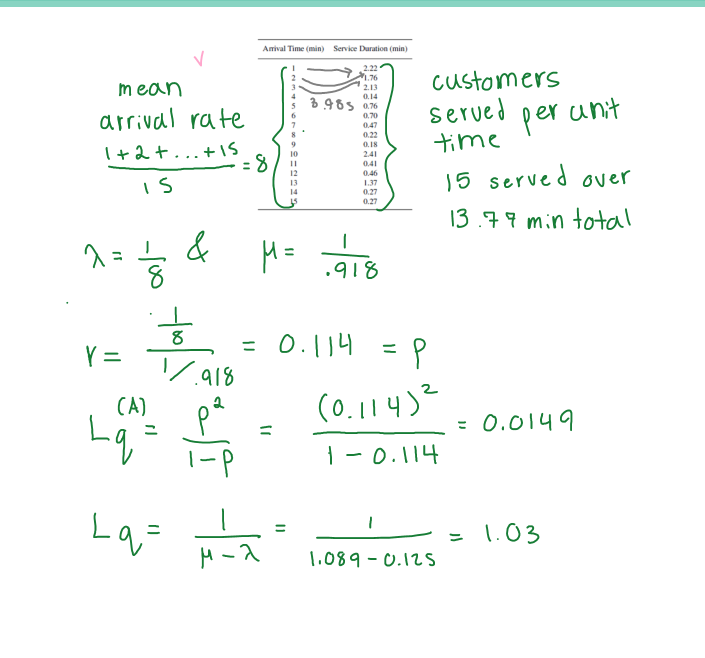 Arrival Time (min) Service Duration (min)
1 2.22
2 1.76
3 2.13
4 0.14
5 0.76
6 0.70
7 0.47
8 0.22
9 0.18
10 2.41
11 0.41
12 0.46
13 1.37
14 0.27
15 0.27
3.985
mean
arrival rate
1+2+...+15
15
= 8
customers
served per unit
time
15 served over
13.77 min total
λ = 1/8 & μ = 1/.918
r = (1/8)/(1/.918) = 0.114 = ρ
Lq(A) = ρ²/(1-ρ) = (0.114)²/(1-0.114) = 0.0149
Lq = 1/(μ-λ) = 1/(1.089-0.125) = 1.03